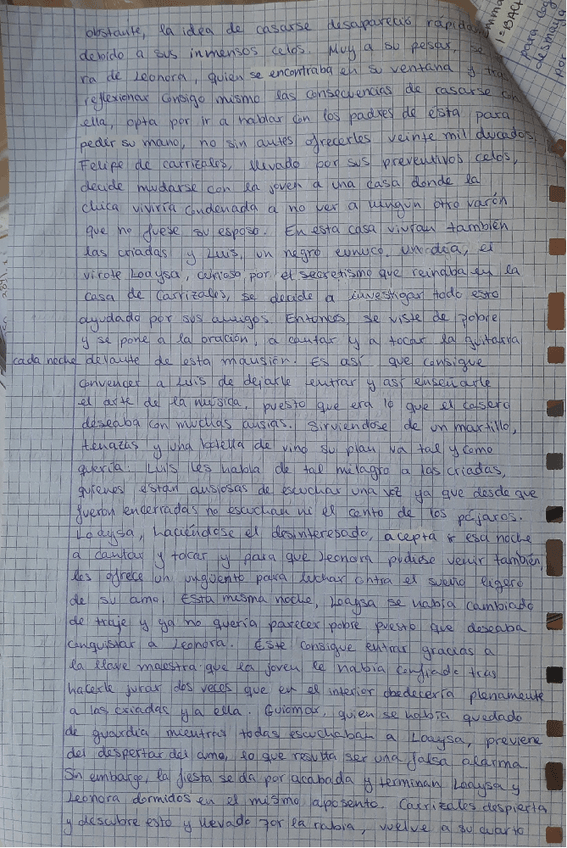 obstante, la idea de casarse desapareció rápidam
debido a sus inmensos celos. Muy a su pesar, se
ra de Leonora, quien se encontraba en su ventana y tras
reflexionar consigo mismo las consecuencias de casarse con
ella, opta por ir a hablar con los padres de esta para
pedir su mano, no sin antes ofrecerles veinte mil ducados.
Felipe de carrizales, llevado por sus preventivos celos,
decide mudarse con la joven a una casa donde la
chica viviría condenada a no ver a ningún otro varón
que no fuese su esposo. En esta casa vivían también
las criadas y Luis, un negro eunuco. Un día, el
virote Loaysa, curioso por el secretismo que reinaba en la
casa de Carrizales, se decide a investigar todo esto
ayudado por sus amigos. Entonces se viste de pobre
y se pone a la oración, a cantar y a tocar la guitarra
cada noche delante de esta mansión. Es así que consigue
convencer a Luis de dejarle entrar y así enseñarle
el arte de la música, puesto que era lo que el casero
deseaba con muchas ansias. Sirviéndose de un martillo,
tenazas y una botella de vino su plan va tal y como
quería. Luis les habla de tal milagro a las criadas,
quienes están ansiosas de escuchar una voz ya que desde que
fueron encerradas no escuchan ni el canto de los pájaros.
Loaysa, haciéndose el desinteresado, acepta esa noche
a cantar y tocar y para que Leonora pudiese venir también,
les ofrece un ungüento para luchar contra el sueño ligero
de su amo. Esta misma noche, Loaysa se había cambiado
de traje y ya no quería parecer pobre puesto que deseaba
conquistar a Leonora. Este consigue entrar gracias a
la llave maestra que la joven le había confiado tras
hacerle jurar dos veces que en el interior obedecería plenamente
a las criadas y a ella. Guiomar, quien se había quedado
de guardia mientras todas escuchaban a Loaysa, previene
del despertar del amo, lo que resulta ser una falsa alarma.
Sin embargo, la fiesta se da por acabada y terminan Loaysa y
Leonora dormidos en el mismo aposento. Carrizales despierta
y descubre esto y llevado por la rabia, vuelve a su cuarto
para
desmaya
por